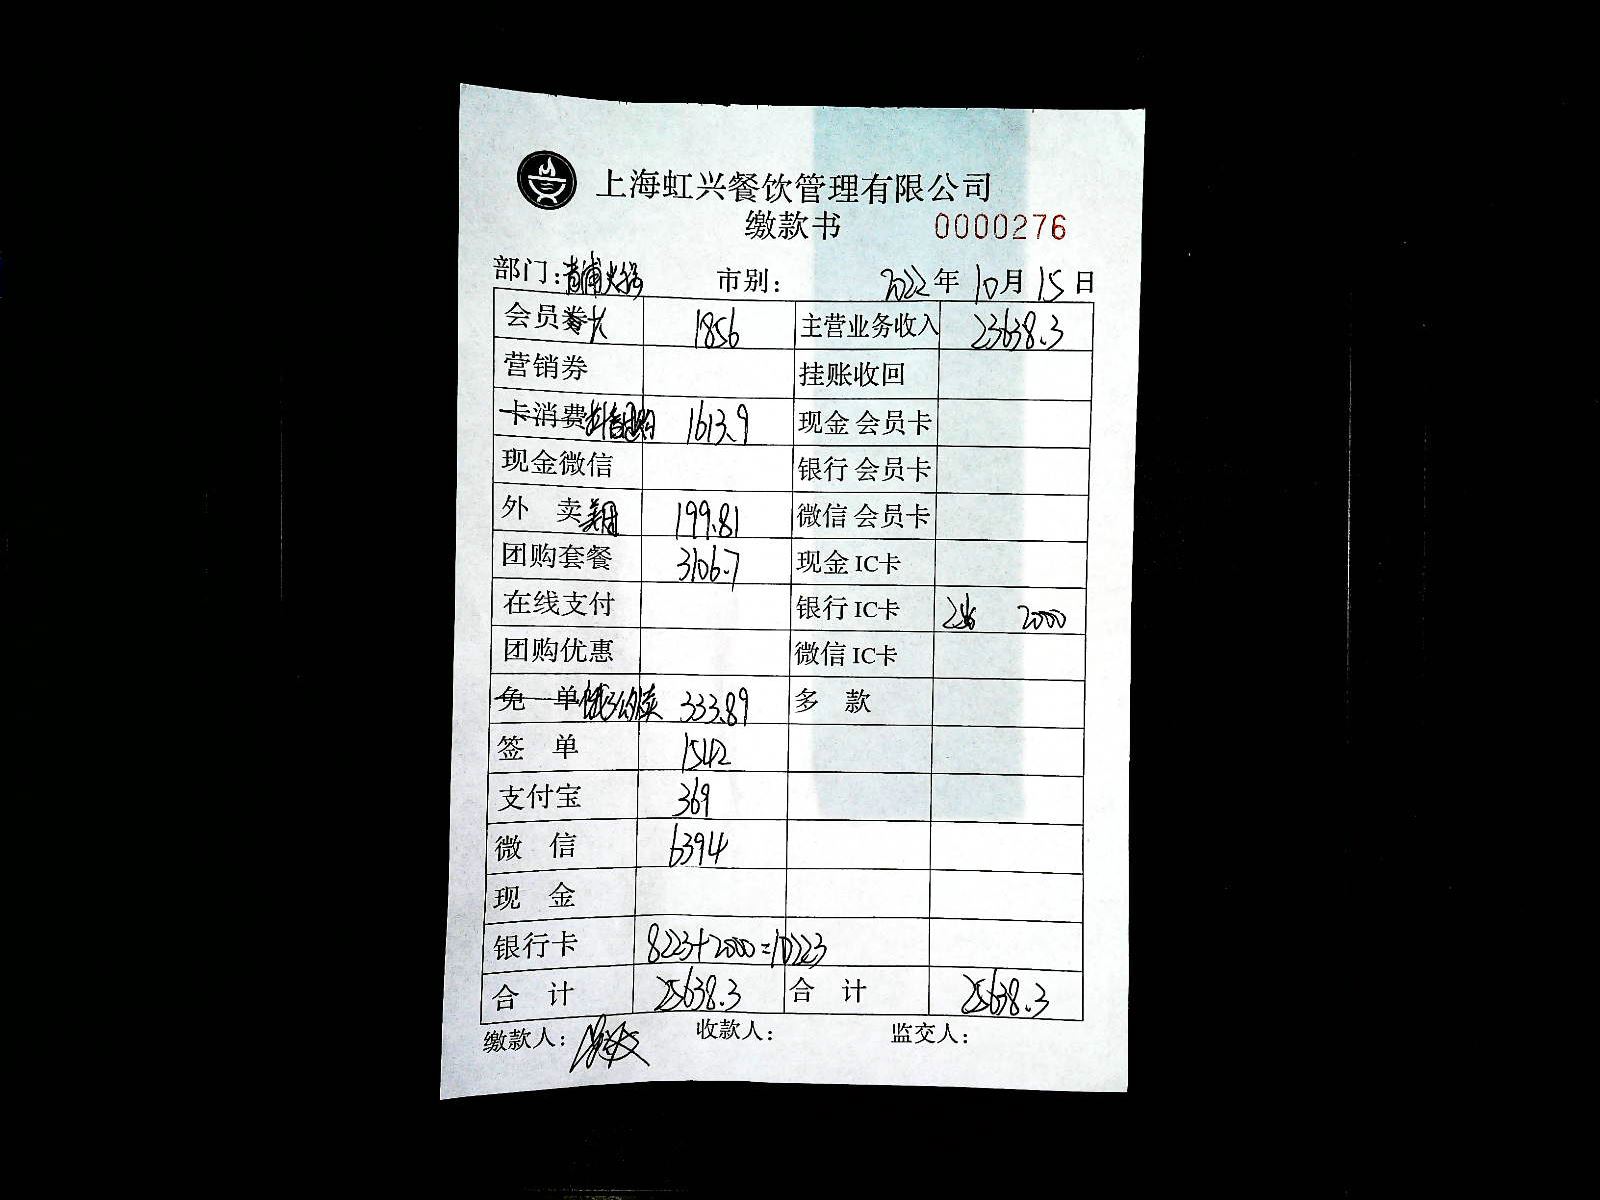 上海虹兴餐饮管理有限公司
缴款书 0000276
部门：青浦火锅 市别： 2022年10月15日
会员券大 1856 主营业务收入 23638.3
营销券 挂账收回
卡消费抖音团购 1613.9 现金 会员卡
现金微信 银行 会员卡
外 卖美团 199.81 微信 会员卡
团购套餐 3106.7 现金 IC卡
在线支付 银行 IC卡 2000
团购优惠 微信 IC卡
免 单饿了么外卖 333.89 多 款
签 单 1542
支付宝 369
微 信 6394
现 金
银行卡 8223+2000=10223
合 计 25638.3 合 计 25638.3
缴款人： 收款人： 监交人：